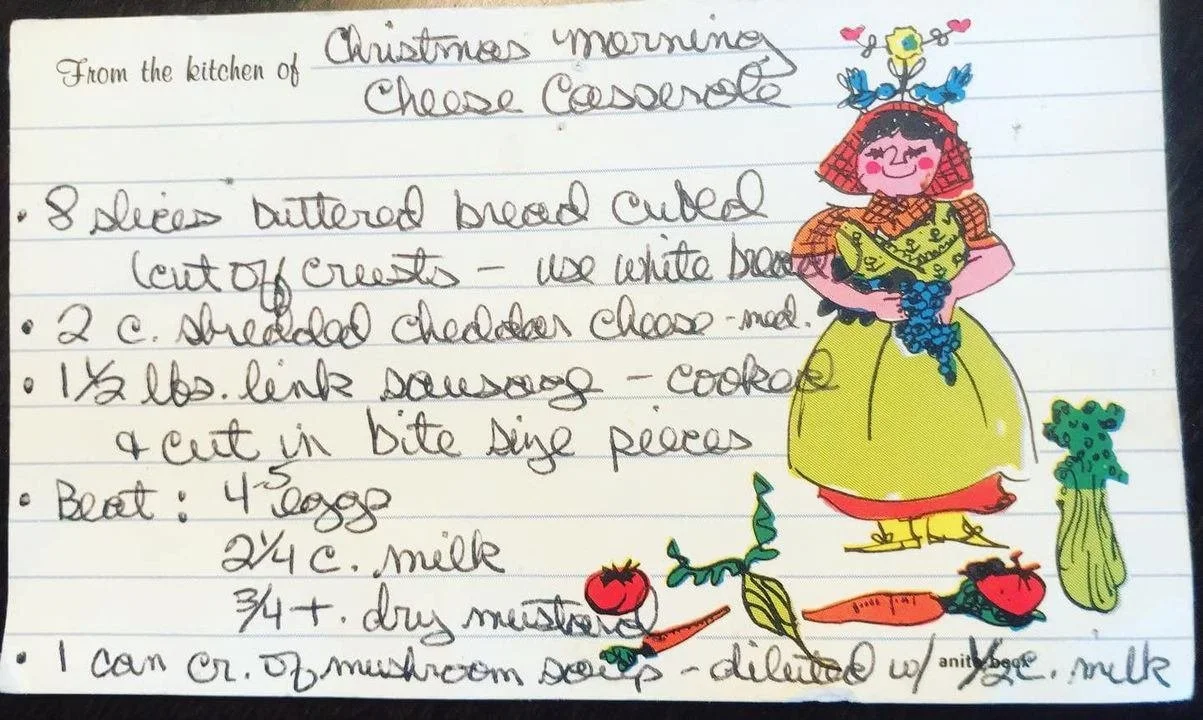 From the kitchen of Christmas morning
Cheese Casserole
• 8 slices buttered bread cubed
(cut off crusts - use white bread
• 2 c. shredded cheddar cheese - med.
• 1 1/2 lbs. link sausage - cooked
& cut in bite size pieces
• Beat: 4-5 eggs
2 1/4 c. milk
3/4 t. dry mustard
• 1 can cr. of mushroom soup - diluted w/ 1/2 c. milk